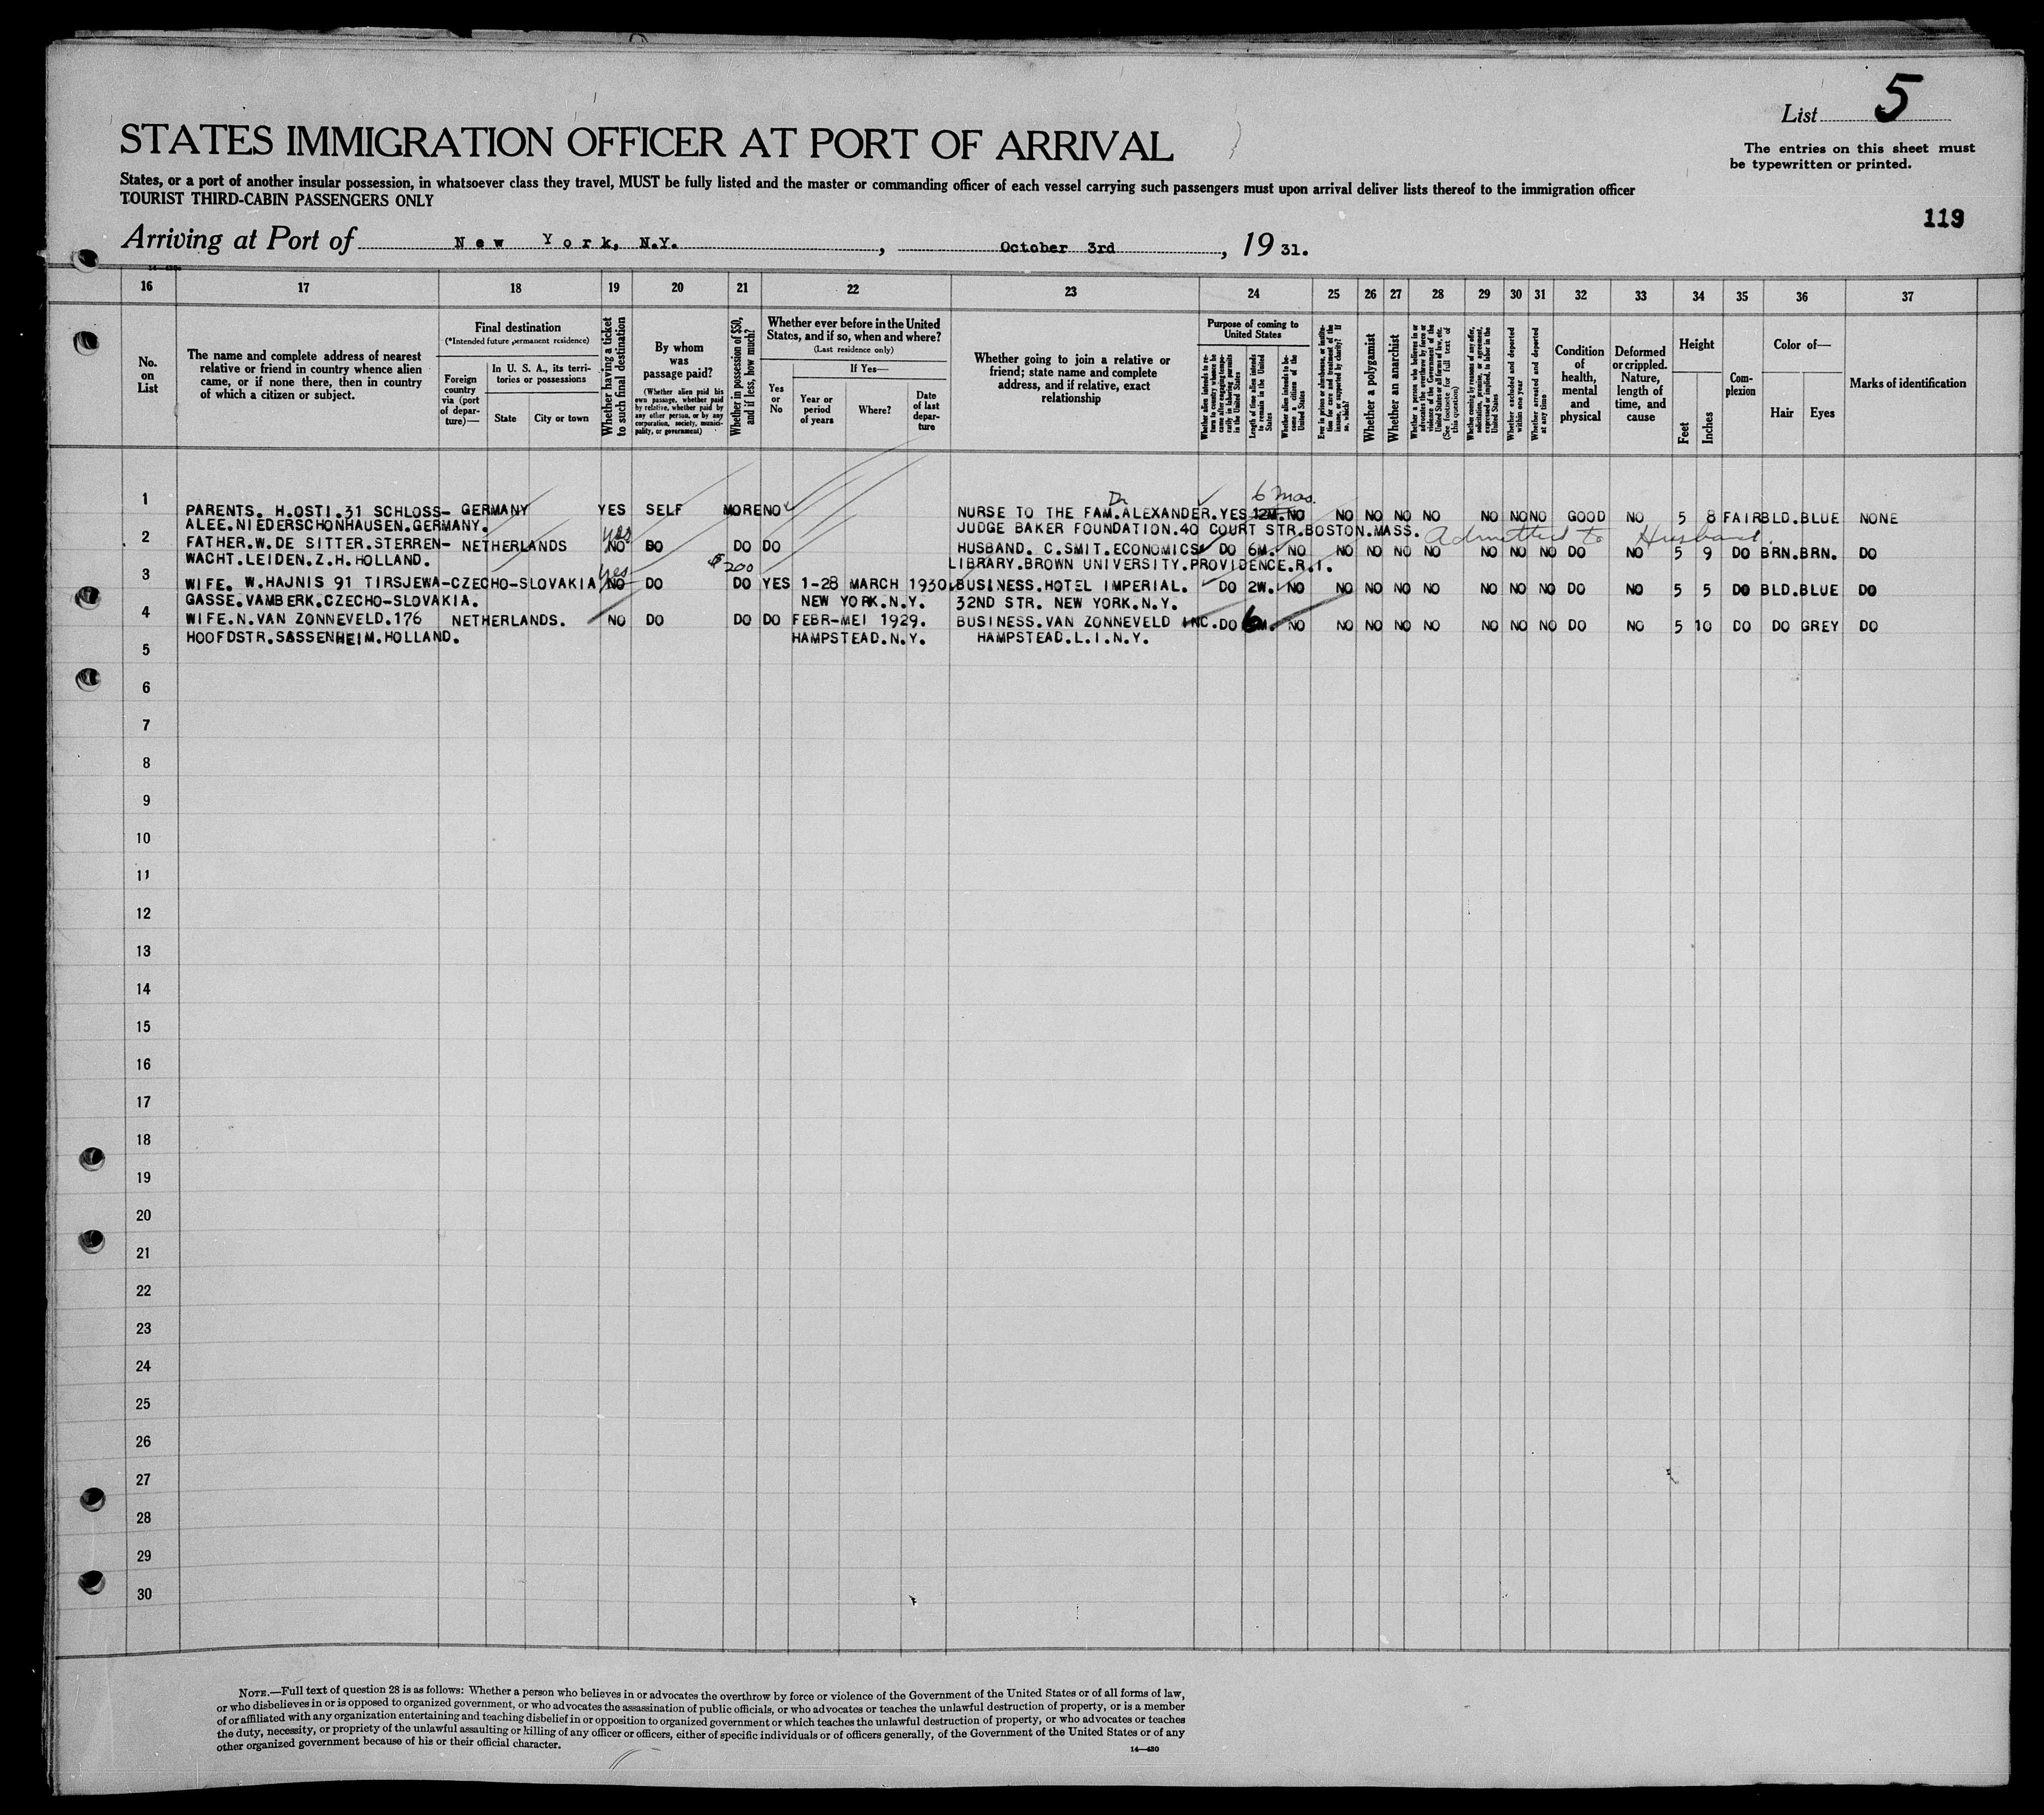 List 5
STATES IMMIGRATION OFFICER AT PORT OF ARRIVAL
The entries on this sheet must
be typewritten or printed.
States, or a port of another insular possession, in whatsoever class they travel, MUST be fully listed and the master or commanding officer of each vessel carrying such passengers must upon arrival deliver lists thereof to the immigration officer
TOURIST THIRD-CABIN PASSENGERS ONLY
119
Arriving at Port of New York, N.Y. , October 3rd , 19 31.
16 17 18 19 20 21 22 23 24 25 26 27 28 29 30 31 32 33 34 35 36 37
No. on List
The name and complete address of nearest
relative or friend in country whence alien
came, or if none there, then in country
of which a citizen or subject.
Final destination
(*Intended future permanent residence)
Foreign country via (port of departure)—
In U. S. A., its territories or possessions
State
City or town
Whether having a ticket to such final destination
By whom was passage paid?
(Whether alien paid his own passage, whether paid by relative, whether paid by any other person, or by any corporation, society, municipality, or government)
Whether in possession of $50, and if less, how much?
Whether ever before in the United
States, and if so, when and where?
(Last residence only)
Yes or No
If Yes—
Year or period of years
Where?
Date of last departure
Whether going to join a relative or
friend; state name and complete
address, and if relative, exact
relationship
Purpose of coming to United States
Length of time alien intends to remain in the United States
Whether alien intends to become a citizen of the United States
Whether a polygamist
Whether an anarchist
(See footnote for full text of this question)
Whether excluded and deported within one year
Whether arrested and deported at any time
Condition of health, mental and physical
Deformed or crippled. Nature, length of time, and cause
Height
Feet
Inches
Complexion
Color of—
Hair
Eyes
Marks of identification
6 mos.
Dr
1 PARENTS. H.OSTI.31 SCHLOSS- GERMANY YES SELF MORE NO NURSE TO THE FAM.ALEXANDER. YES 12M. NO NO NO NO NO NO NO NO GOOD NO 5 8 FAIR BLD. BLUE NONE
ALEE.NIEDERSCHONHAUSEN.GERMANY. JUDGE BAKER FOUNDATION.40 COURT STR.BOSTON.MASS.
yes Admitted to Husband.
2 FATHER.W.DE SITTER.STERREN- NETHERLANDS NO DO DO DO HUSBAND. C.SMIT.ECONOMICS DO 6M. NO NO NO NO NO NO NO NO DO NO 5 9 DO BRN. BRN. DO
WACHT.LEIDEN.Z.H.HOLLAND. LIBRARY.BROWN UNIVERSITY.PROVIDENCE.R.I.
yes $200
3 WIFE. W.HAJNIS 91 TIRSJEWA- CZECHO-SLOVAKIA NO DO DO YES 1-28 MARCH 1930. BUSINESS.HOTEL IMPERIAL. DO 2W. NO NO NO NO NO NO NO NO DO NO 5 5 DO BLD. BLUE DO
GASSE.VAMBERK.CZECHO-SLOVAKIA. NEW YORK.N.Y. 32ND STR. NEW YORK.N.Y.
4 WIFE.N.VAN ZONNEVELD.176 NETHERLANDS. NO DO DO DO FEBR-MEI 1929. BUSINESS.VAN ZONNEVELD INC. DO 6M. NO NO NO NO NO NO NO NO DO NO 5 10 DO DO GREY DO
HOOFDSTR.SASSENHEIM.HOLLAND. HAMPSTEAD.N.Y. HAMPSTEAD.L.I.N.Y.
5
6
7
8
9
10
11
12
13
14
15
16
17
18
19
20
21
22
23
24
25
26
27
28
29
30
NOTE.—Full text of question 28 is as follows: Whether a person who believes in or advocates the overthrow by force or violence of the Government of the United States or of all forms of law,
or who disbelieves in or is opposed to organized government, or who advocates the assassination of public officials, or who advocates or teaches the unlawful destruction of property, or is a member
of or affiliated with any organization entertaining and teaching disbelief in or opposition to organized government or which teaches the unlawful destruction of property, or who advocates or teaches
the duty, necessity, or propriety of the unlawful assaulting or killing of any officer or officers, either of specific individuals or of officers generally, of the Government of the United States or of any
other organized government because of his or their official character.
14—430